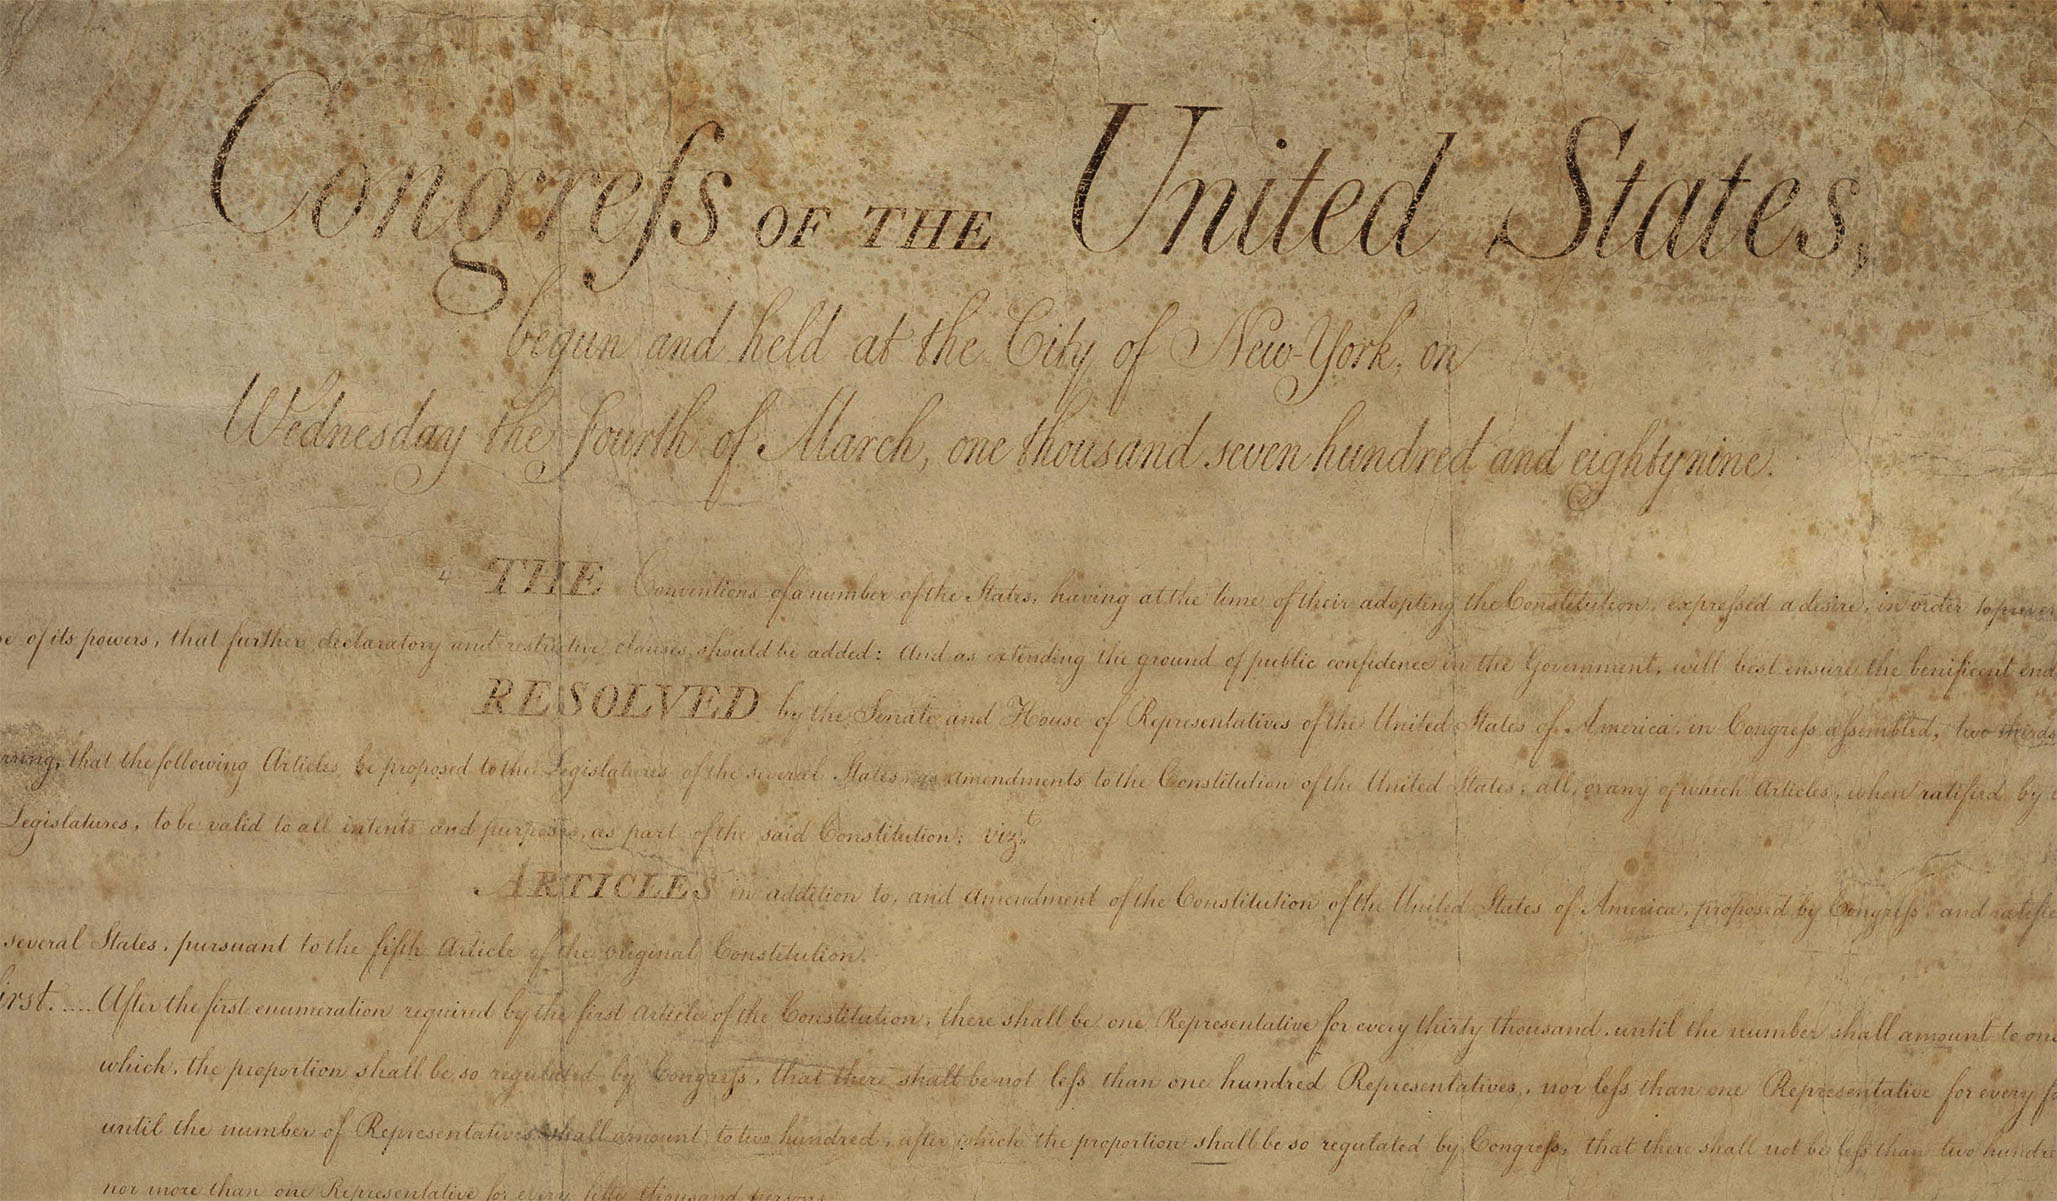 Congreſs OF THE United States,
begun and held at the City of New-York, on
Wednesday the fourth of March, one thousand seven hundred and eighty nine.
THE Conventions of a number of the States, having at the time of their adopting the Constitution, expreſsed a desire, in order to
of its powers, that further declaratory and restrictive clauses should be added: And as extending the ground of public confidence in the Government, will best ensure the benificent
RESOLVED by the Senate and House of Representatives of the United States of America, in Congreſs aſsembled, two thirds
that the following Articles be proposed to the Legislatures of the several States, as amendments to the Constitution of the United States, all, or any of which Articles, when ratified by
Legislatures, to be valid to all intents and purposes, as part of the said Constitution; vizt.
ARTICLES in addition to, and amendment of the Constitution of the United States of America, proposed by Congreſs, and
several States, pursuant to the fifth Article of the original Constitution.
.... After the first enumeration required by the first Article of the Constitution, there shall be one Representative for every thirty thousand, until the number shall amount to
which, the proportion shall be so regulated by Congreſs, that there shall be not leſs than one hundred Representatives, nor leſs than one Representative for every
until the number of Representatives shall amount to two hundred, after which the proportion shall be so regulated by Congreſs, that there shall not be leſs than two
nor more than one Representative for every fifty thousand persons.